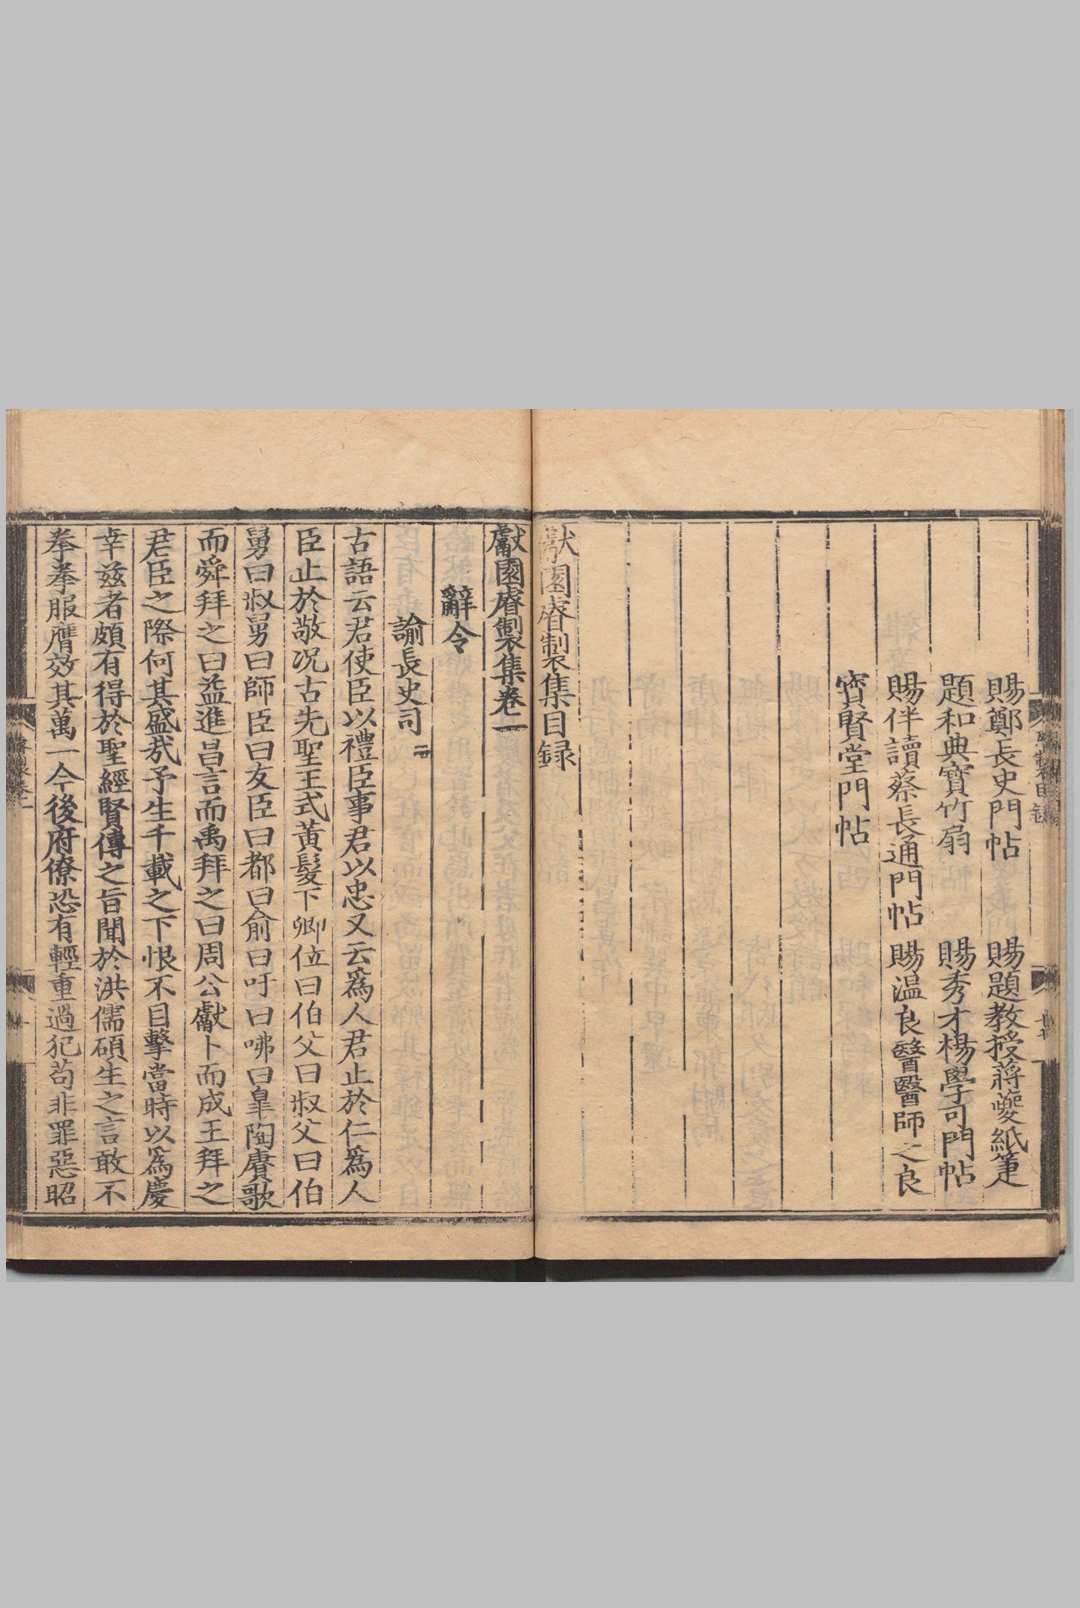 賜鄭長史門帖 賜題教授蔣夔紙箑
題和典寶竹扇 賜秀才楊學可門帖
賜伴讀蔡長通門帖 賜溫良醫醫師之良
寶賢堂門帖
獻園睿製集目録
獻園睿製集卷一
辭令
諭長史司二
古語云君使臣以禮臣事君以忠又云爲人君止於仁爲人
臣止於敬况古先聖王式黃髮下卿位曰伯父曰叔父曰伯
舅曰叔舅曰師臣曰友臣曰都曰俞曰吁曰咈曰臯陶賡歌
而舜拜之曰益進昌言而禹拜之曰周公獻卜而成王拜之
君臣之際何其盛㢤予生千載之下恨不目擊當時以爲慶
幸兹者頗有得於聖經賢傳之旨聞於洪儒碩生之言敢不
拳拳服膺效其萬一今後府僚恐有輕重過犯苟非罪惡昭